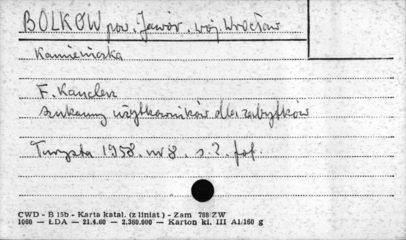 BOLKÓW pow. Jawór. woj. Wrocław
Kamieniczka
F. Kanclerz
Szukamy użytkowników dla zabytków
Turysta 1958. nr 8. s. 2. fot.
CWD - B 15b - Karta katal. (z liniat) - Zam 788/ZW
1060 — ŁDA — 21.4.60 — 2.360.000 — Karton kl. III A1/160 g